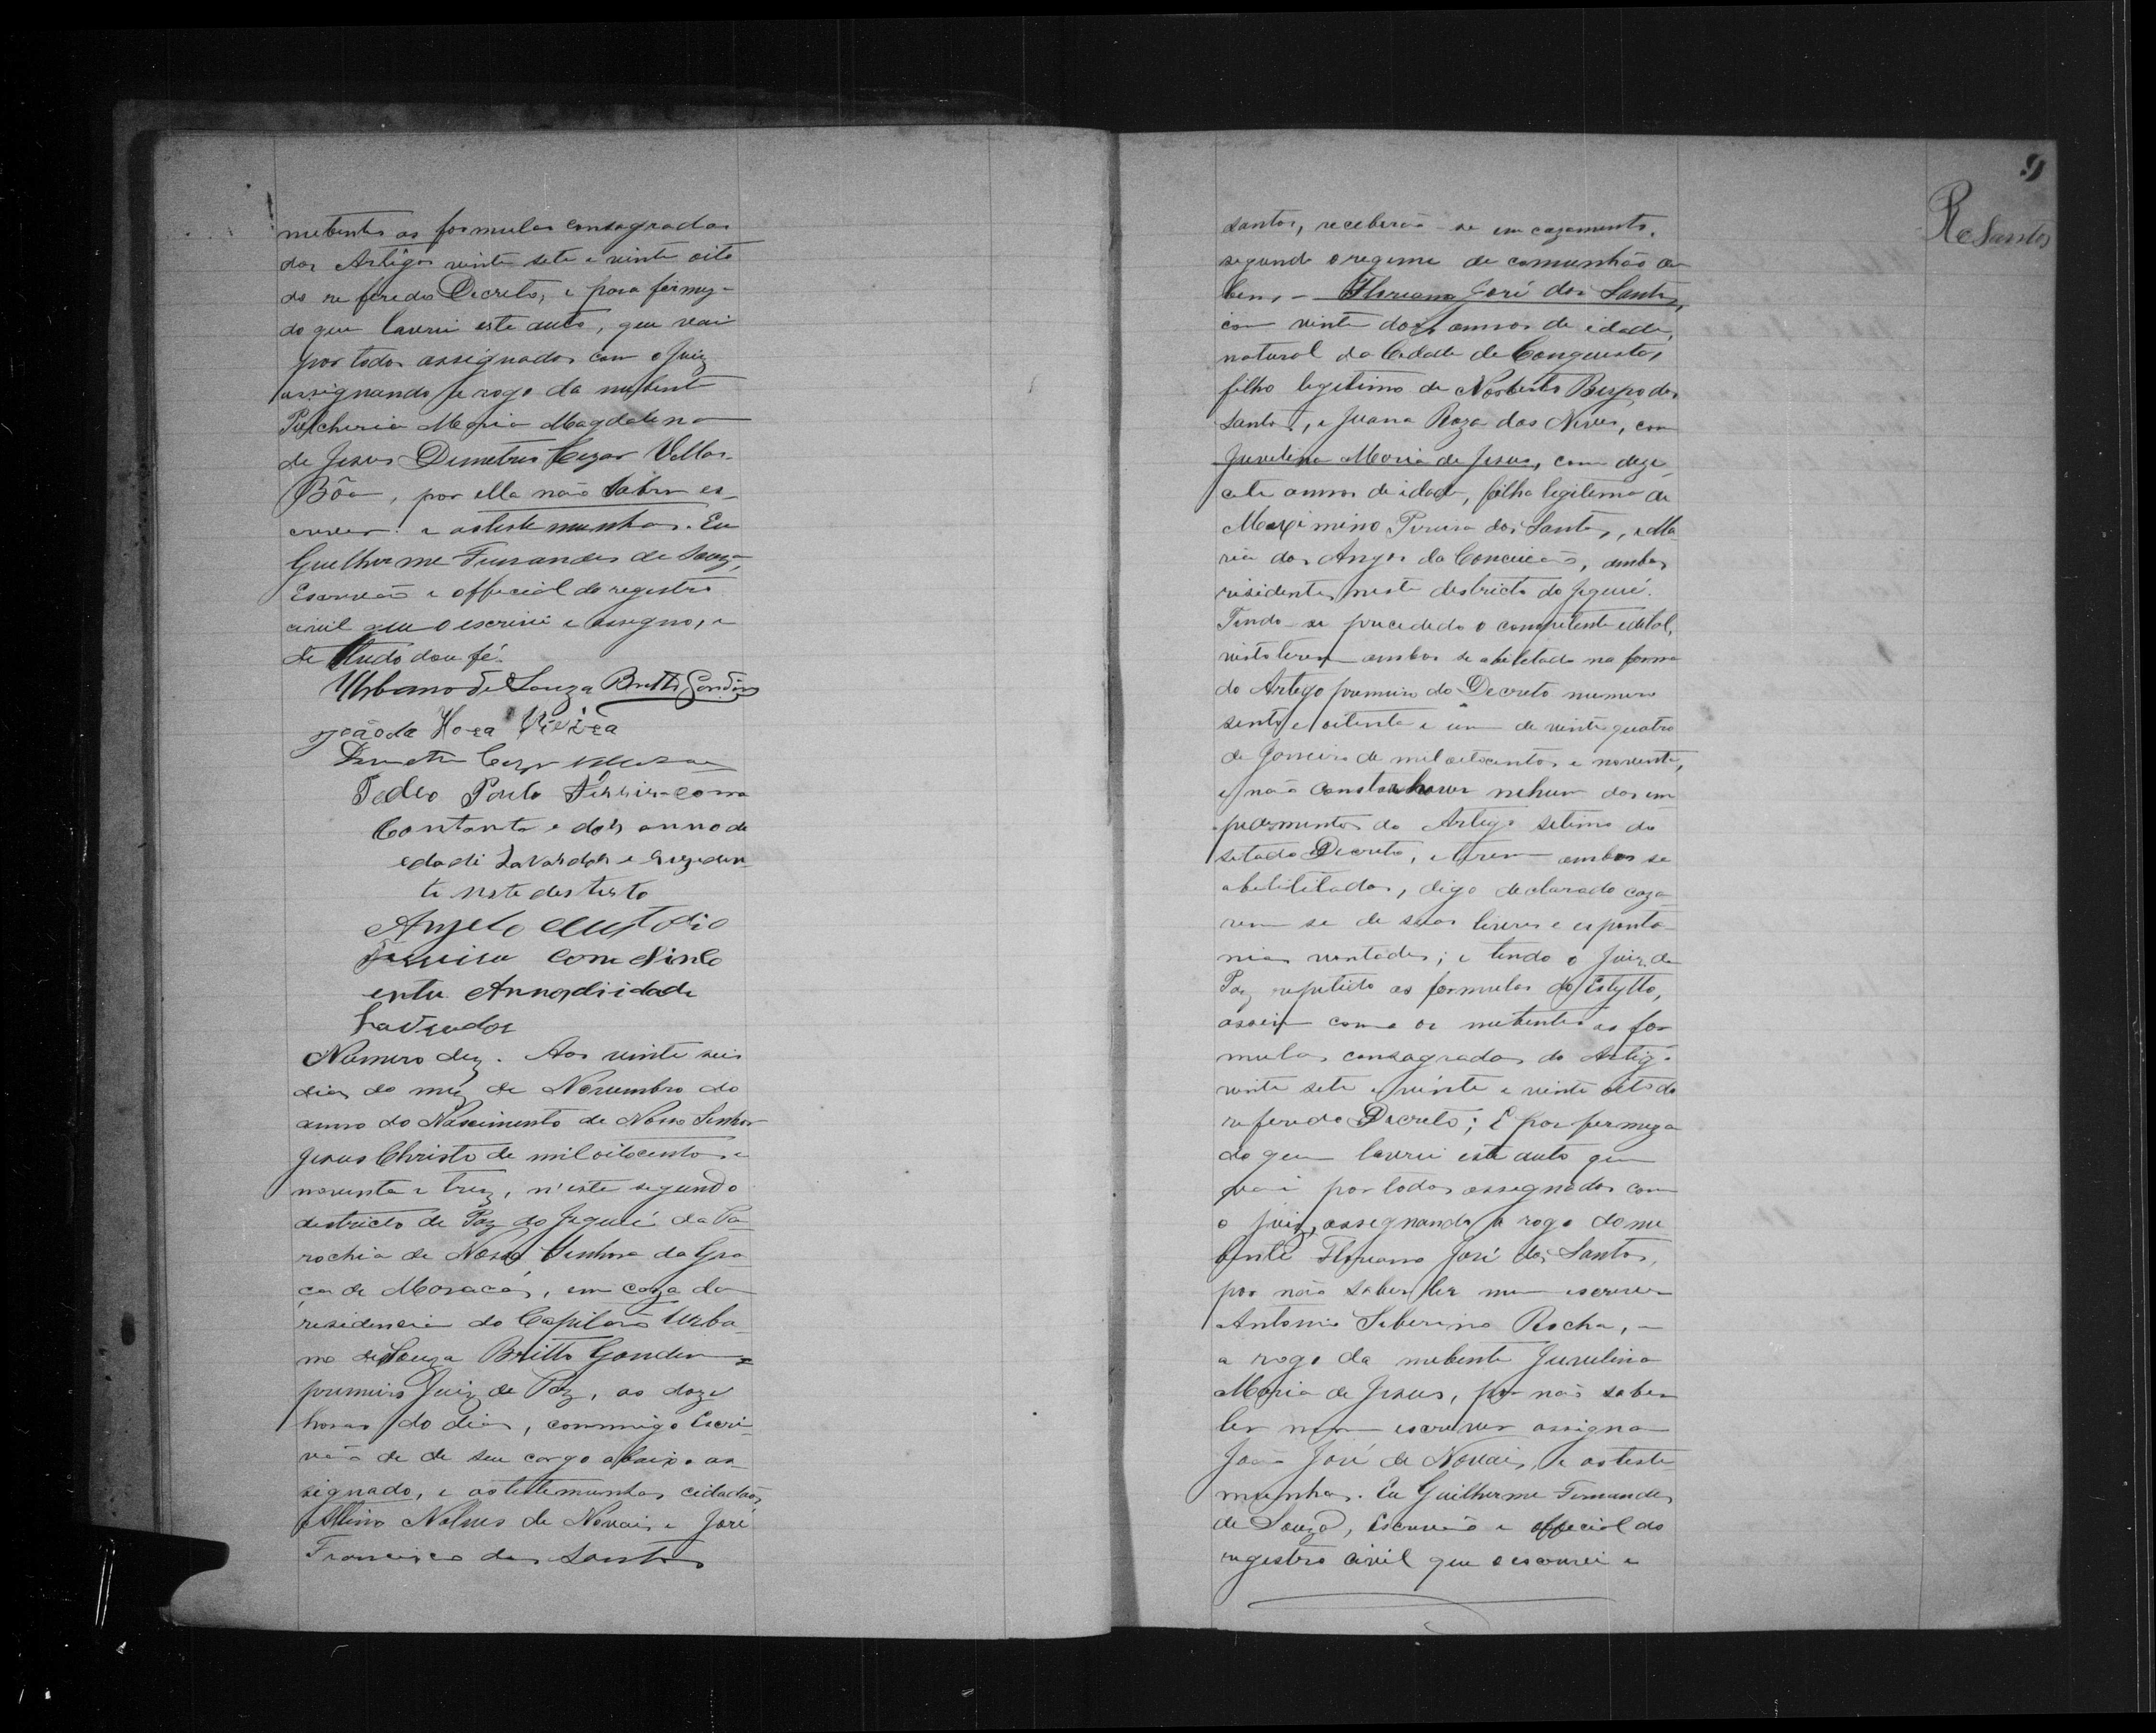 nubentes as formulas consagradas
dos Artigos vinte sete e vinte oito
do referedo Decreto, e para firmez-
do que lavrei este auto, que vai
por todos assignados com o Juiz
assignando a rogo da nubente
Pulcheria Maria Magdalena
de Jesus Demetrio Cezar Vellas-
Bôa, por ella não saber es-
crever: e as testemunhas. Eu
Guelherme Fernandes de Souza,
Escrivão e official do registro
civil que o escrivi e assegno, e
de tudo dou fé.
Urbano de Souza Britto Gondin
João da Hora Vieira
Cezar
Pedro Paulo com
e dois anno de
edadi Lavrador e
te neste destrito
Angelo Custodio
com
Anno di idade
Lavrador
Numero dez. Aos vinte seis
dias do mez de Novembro do
anno do Nascimento de Nosso Senhor
Jesus Christo de mil oitocentos e
noventa e trez, n'este segundo
destricto de Paz do Jequié da Pa
rochia de Nossa Senhora da Gra
ça de Maracás, em caza da
residencia do Capitão Urba-
no de Souza Britto Gondin =
premeiro Juiz de Paz, as doze
horas do dia, commigo Escri-
vão de de seu cargo abaixo as-
signado, e as testemunhas cidadãos
Nolves de Novais e José
Francisco dos Santos
9
R e Santos
santos, receberão-se em cazamento,
segundo o regime de comunhão de
bens, - Floriano José dos Santos,
com vinte dois annos de idade,
natural da Cidade de Conquista,
filho legitimo de Norberto Bispo dos
Santos, e Juana Roza das Neves, com
Juvelina Maria de Jesus, com deze-
cete annos de idade, filha legitima de
Maximino Pereira dos Santos, e Ma
ria dos Anjos da Conceicão, ambos
residentes neste destricto do Jequié.
Tendo-se procededo o competente edital,
visto terem ambos se abeletado na forma
do Artego premeiro do Decreto numero
sento e oitenta e um de vinte quatro
de Janeiro de mil oitocentos e noventa,
e não constar haver nehum dos im
pedementos do Artego setimo do
setado Decreto, e terem ambos se
abelitados, digo declarado caza
rem se de suas livres e esponta
nias vontades; e tendo o Juiz de
Paz repetido as formulas do Estyllo,
assim como os nubentes as for
mulas consagradas do Artigo
vinte sete e vinte e vinte oito do
referedo Decreto; E por fermeza
do que lavrei este auto que
vai por todos assegnados com
o juiz, assegnando a rogo do nu
bente Floriano José dos Santos,
por não saber ler nem escrever
Antonio Seberino Rocha, e
a rogo da nubente Juvelina
Maria de Jesus, por não saber
ler nem escrever assigna
João José de Novais, e as teste
munhas. Eu Guilherme Fernandes
de Souza, Escrivão e official do
registro civil que o escrivi e